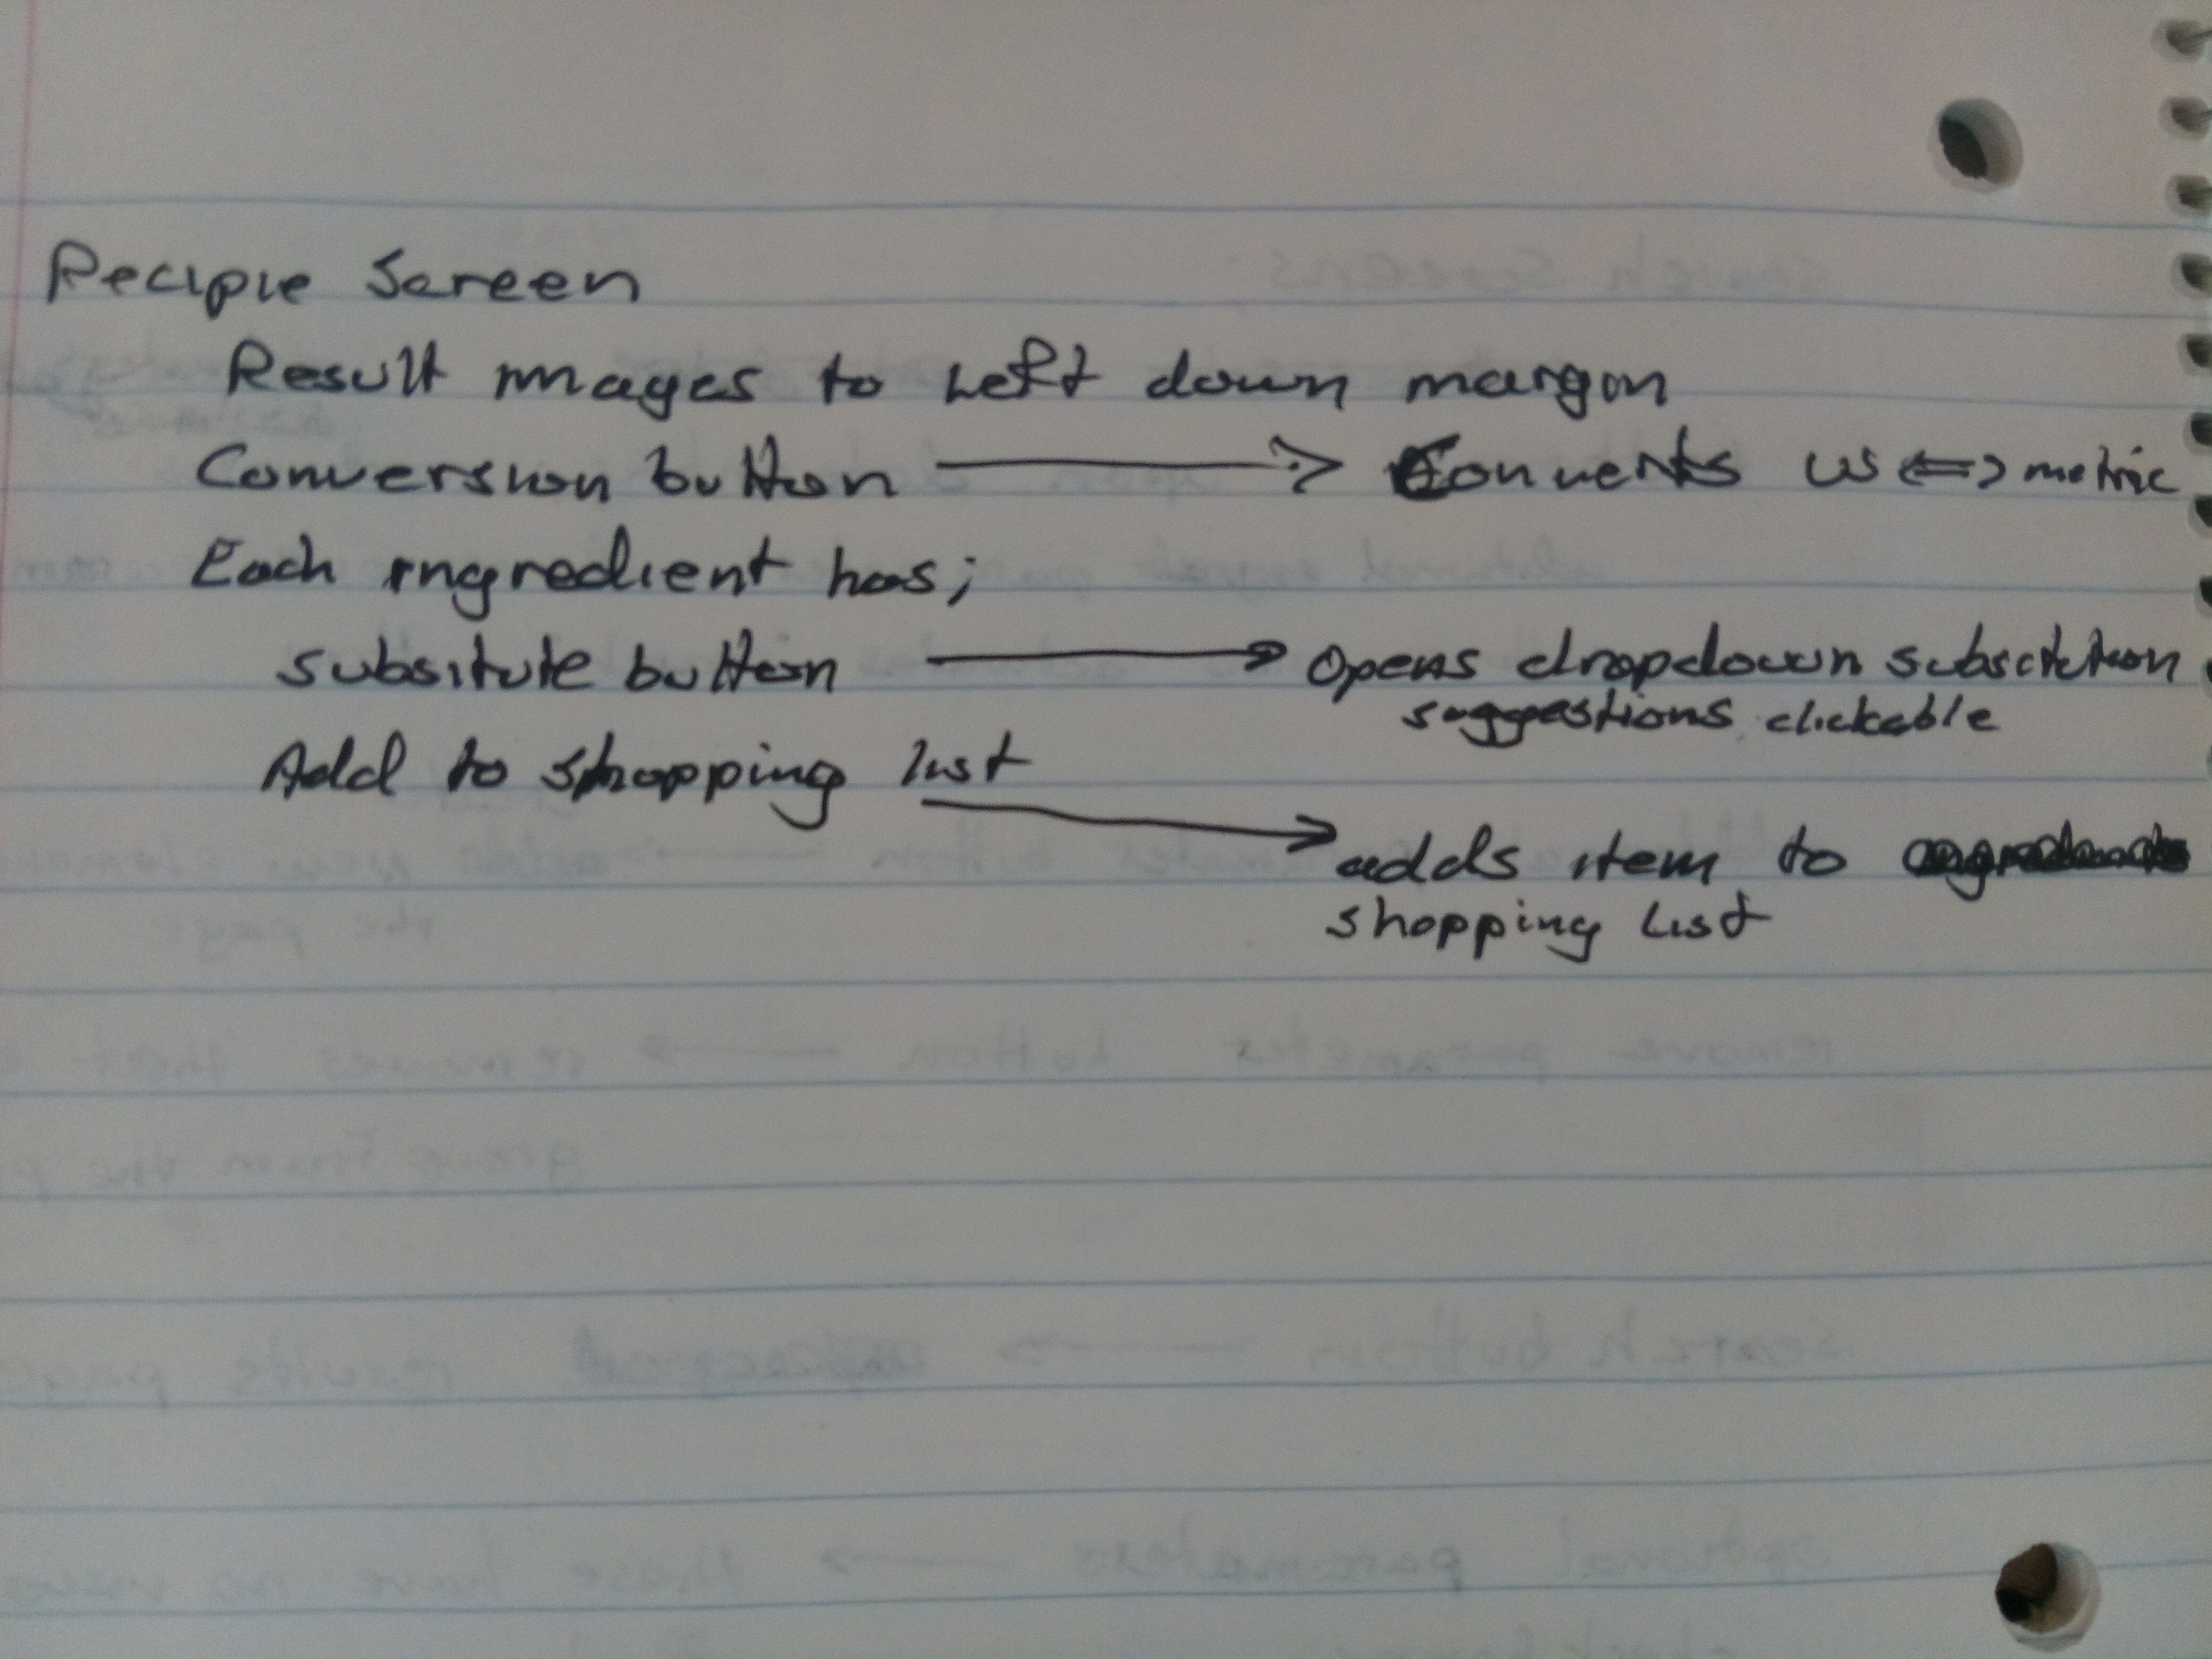 Recipie Screen
Result images to left down margin
Conversion button → Converts US ⇔ metric
Each ingredient has;
subsitute button → opens dropdown subsitution
suggestions clickable
Add to shopping list
→ adds item to
shopping list